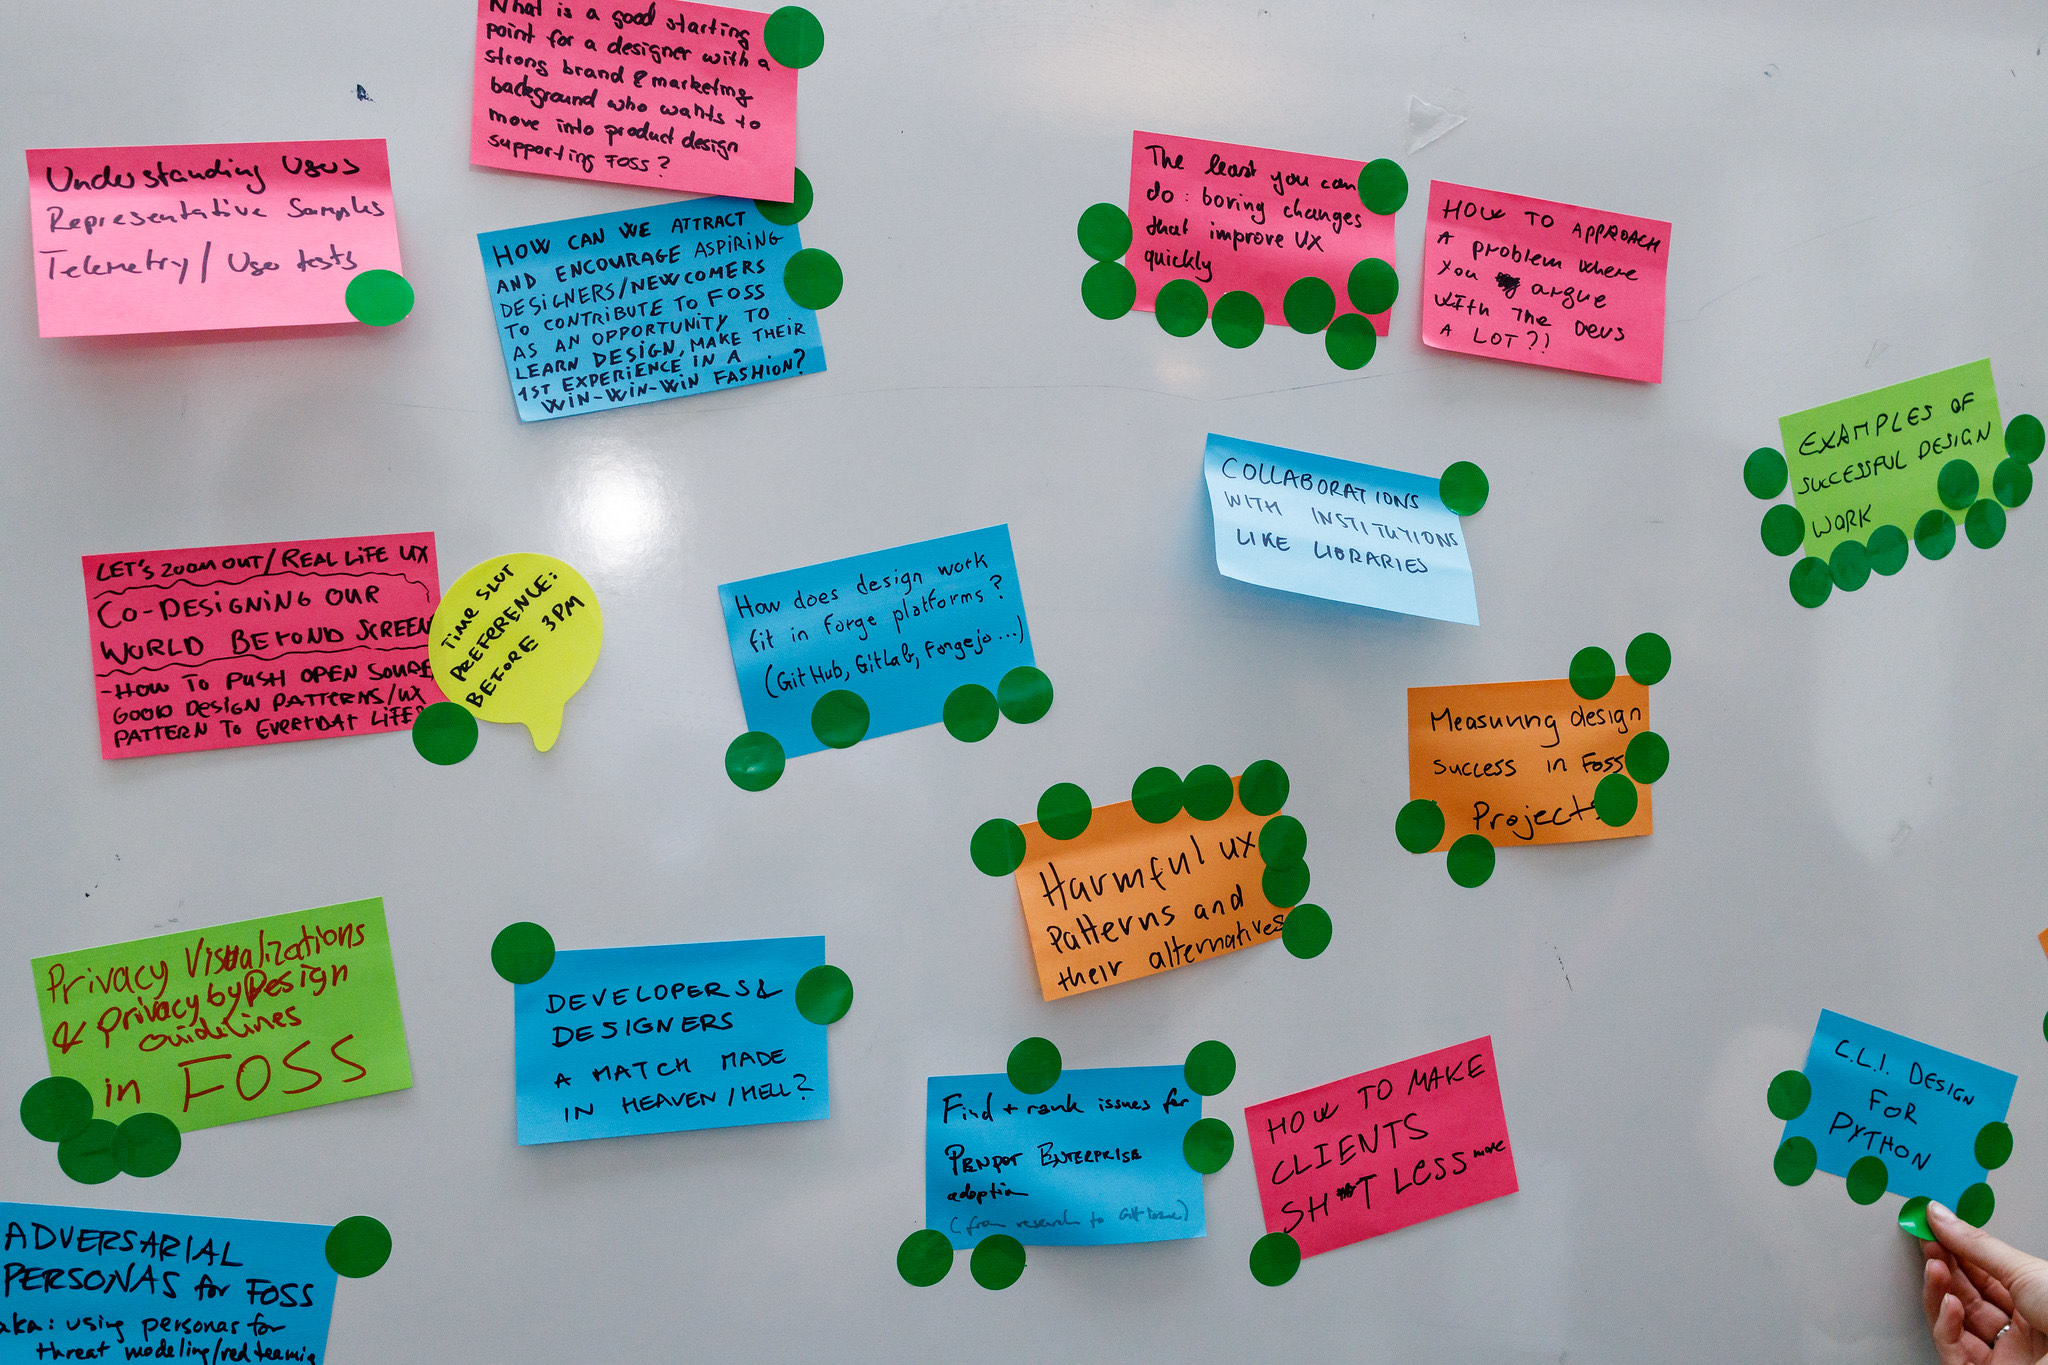 What is a good starting
point for a designer with a
strong brand & marketing
background who wants to
move into product design
supporting FOSS?
Understanding Users
Representative Samples
Telemetry/User tests
HOW CAN WE ATTRACT
AND ENCOURAGE ASPIRING
DESIGNERS/NEWCOMERS
TO CONTRIBUTE TO FOSS
AS AN OPPORTUNITY TO
LEARN DESIGN, MAKE THEIR
1ST EXPERIENCE IN A
WIN-WIN-WIN FASHION?
The least you can
do: boring changes
that improve UX
quickly
HOW TO APPROACH
A problem where
you argue
with the devs
A LOT?!
EXAMPLES OF
SUCCESSFUL DESIGN
WORK
COLLABORATIONS
WITH INSTITUTIONS
LIKE LIBRARIES
LET'S ZOOM OUT/REAL LIFE UX
CO-DESIGNING OUR
WORLD BEYOND SCREEN
-HOW TO PUSH OPEN SOURCE
GOOD DESIGN PATTERNS/UX
PATTERN TO EVERYDAY LIFE?
TIME SLOT
PREFERENCE:
BEFORE 3PM
How does design work
fit in forge platforms?
(GitHub, GitLab, Forgejo...)
Measuring design
success in FOSS
Projects
Harmful UX
patterns and
their alternatives
Privacy Visualizations
& privacy by Design
guidelines
in FOSS
DEVELOPERS &
DESIGNERS
A MATCH MADE
IN HEAVEN/HELL?
Find + rank issues for
PENPOT ENTERPRISE
adoption
(from research to Git issue)
HOW TO MAKE
CLIENTS
SH*T LESS more
C.L.I. DESIGN
FOR
PYTHON
ADVERSARIAL
PERSONAS for FOSS
aka: using personas for
threat modeling/red teaming